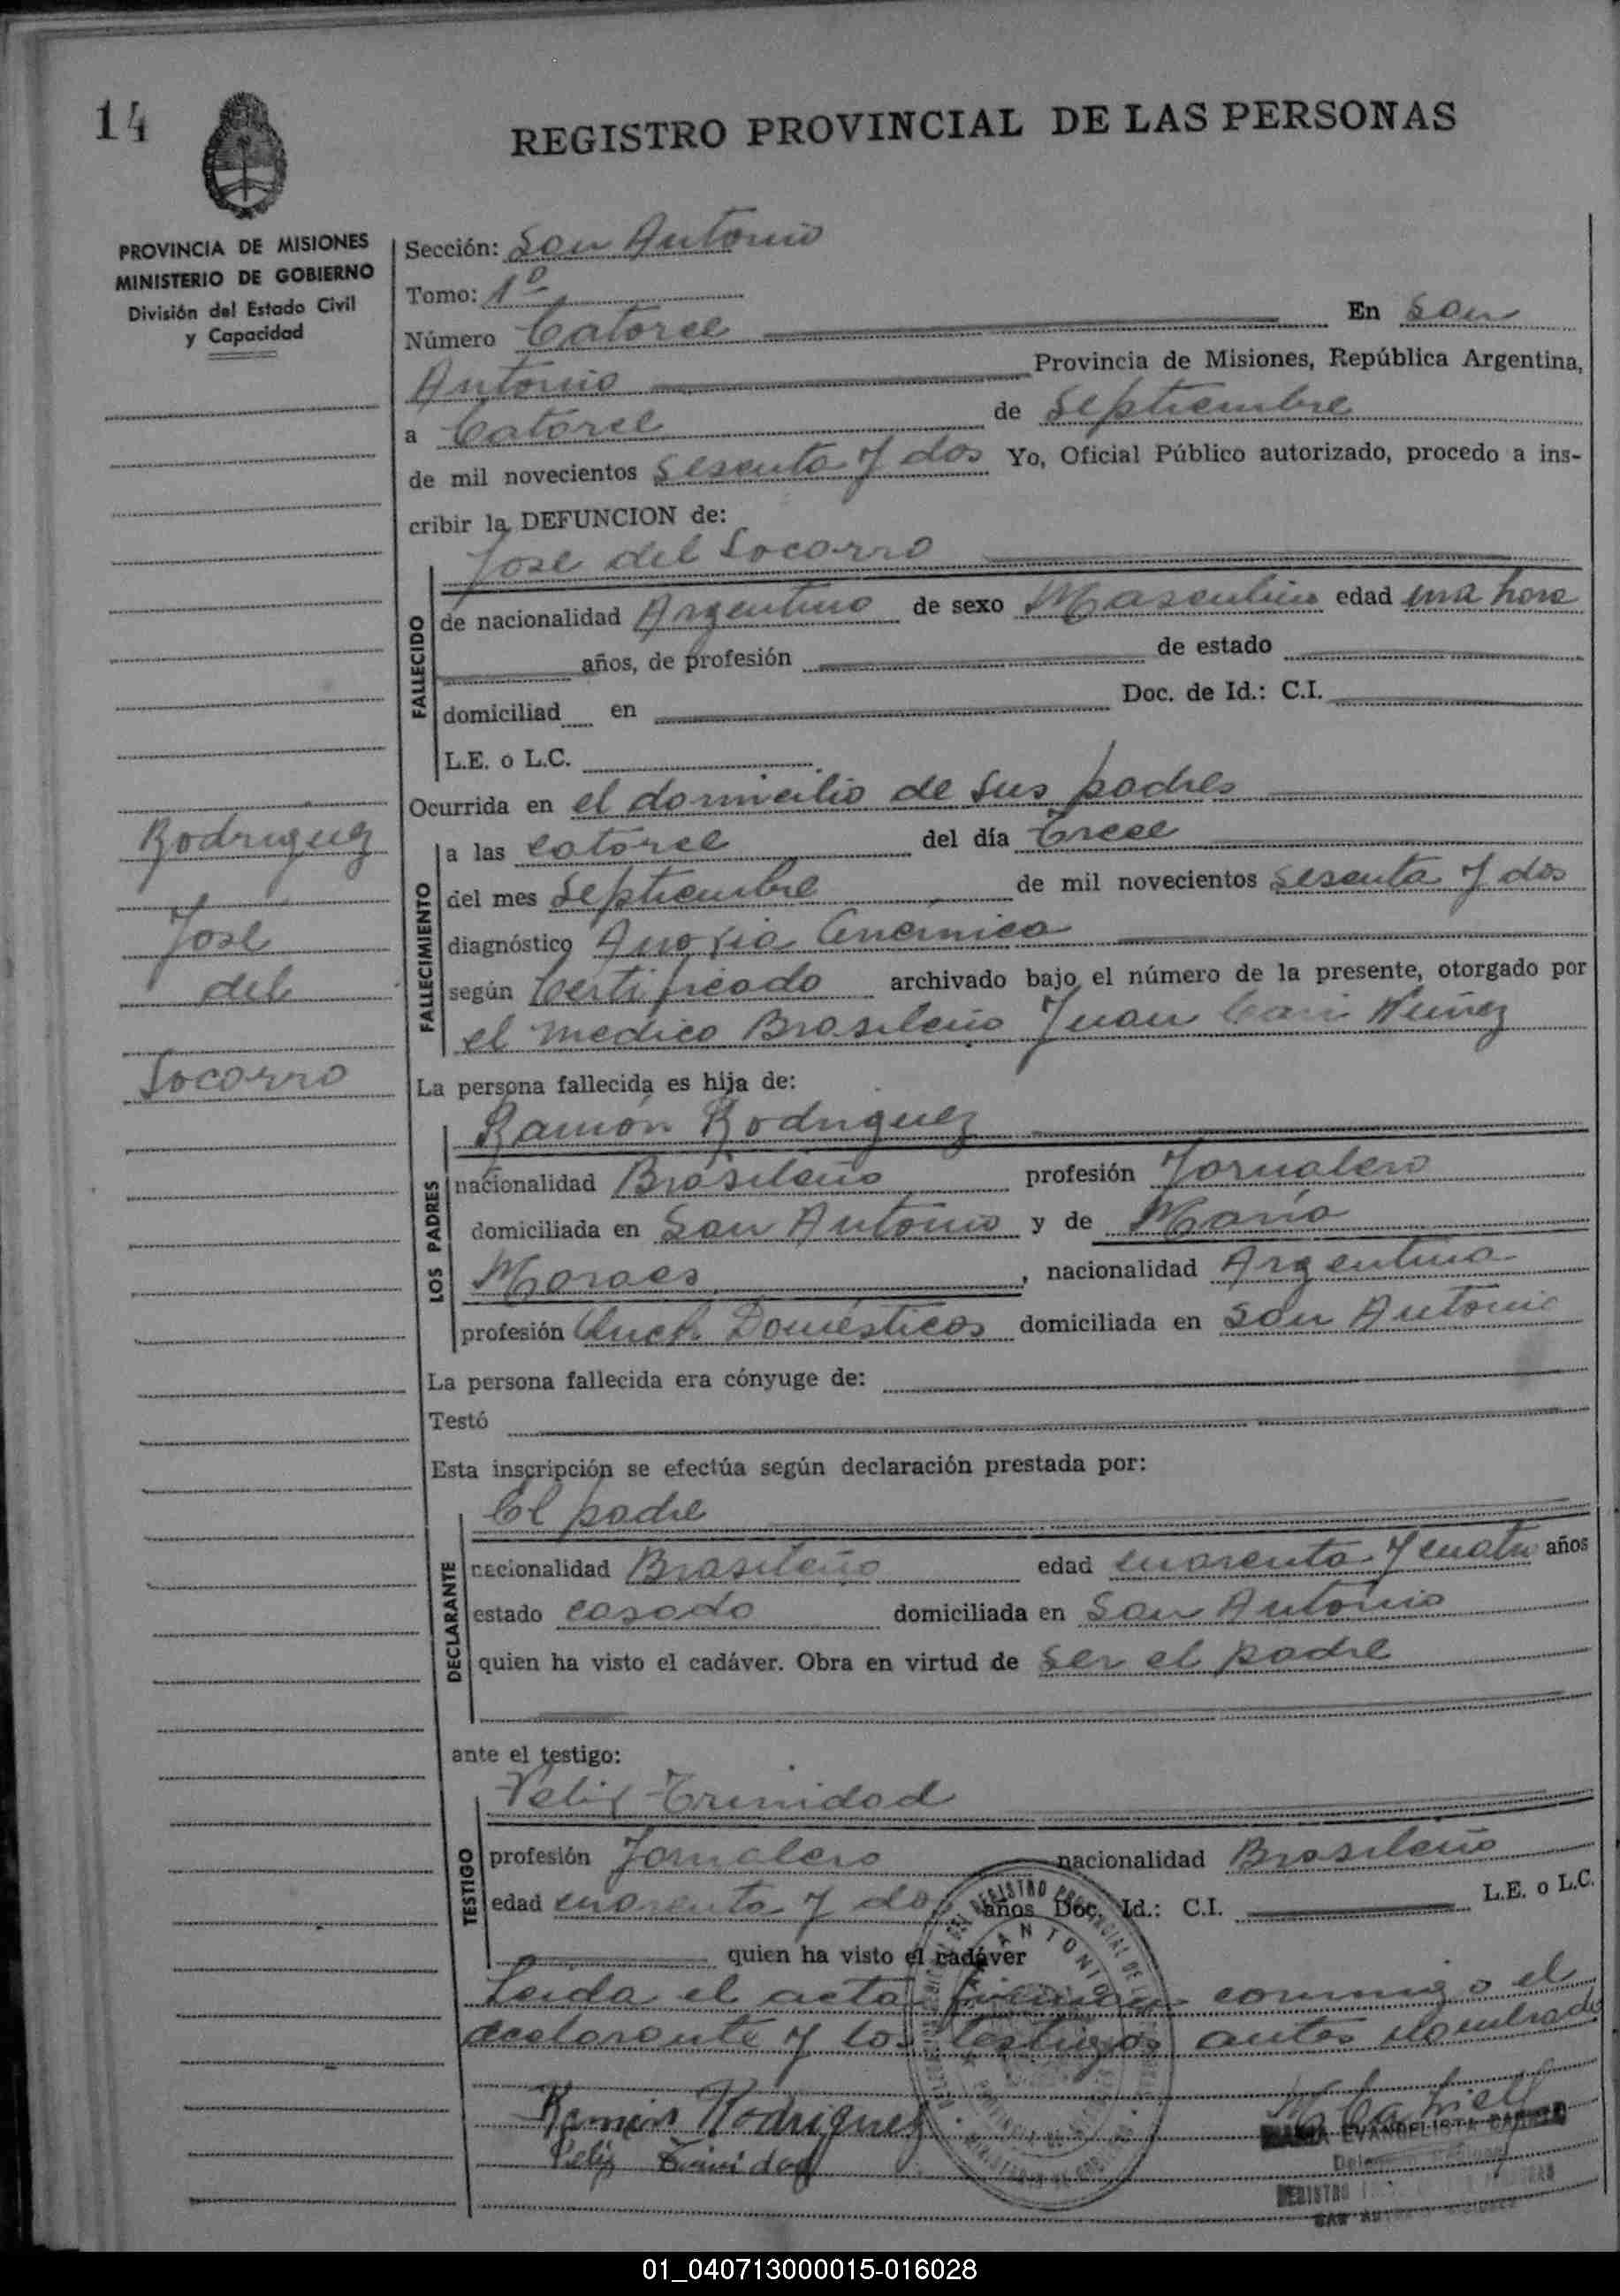 14
REGISTRO PROVINCIAL DE LAS PERSONAS
PROVINCIA DE MISIONES
MINISTERIO DE GOBIERNO
División del Estado Civil
y Capacidad
Sección: San Antonio
Tomo: 1º
Número Catorce En San
Antonio Provincia de Misiones, República Argentina,
a Catorce de Septiembre
de mil novecientos sesenta y dos Yo, Oficial Público autorizado, procedo a ins-
cribir la DEFUNCION de:
Jose del Socorro
FALLECIDO
de nacionalidad Argentino de sexo Masculino edad una hora
años, de profesión de estado
domiciliad en Doc. de Id.: C.I.
L.E. o L.C.
Ocurrida en el domicilio de sus padres
Rodriguez
Jose
del
Socorro
FALLECIMIENTO
a las catorce del día trece
del mes Septiembre de mil novecientos sesenta y dos
diagnóstico Anoxia Anémica
según Certificado archivado bajo el número de la presente, otorgado por
el medico Brasileño Juan Nuñez
La persona fallecida es hija de:
LOS PADRES
Ramón Rodriguez
nacionalidad Brasileño profesión Jornalero
domiciliada en San Antonio y de María
Moraes, nacionalidad Argentina
profesión Domésticos domiciliada en San Antonio
La persona fallecida era cónyuge de:
Testó
Esta inscripción se efectúa según declaración prestada por:
DECLARANTE
El padre
nacionalidad Brasileño edad cuarenta y cuatro años
estado casado domiciliada en San Antonio
quien ha visto el cadáver. Obra en virtud de ser el padre
ante el testigo:
TESTIGO
Felix Trinidad
profesión Jornalero nacionalidad Brasileño
edad cuarenta y dos años Doc. Id.: C.I. L.E. o L.C.
quien ha visto el cadáver
Leida el acta firman conmigo el
declarante y los testigos antes nombrado
Ramon Rodriguez
Felix Trinidad
EVANGELISTA
REGISTRO
01_040713000015-016028